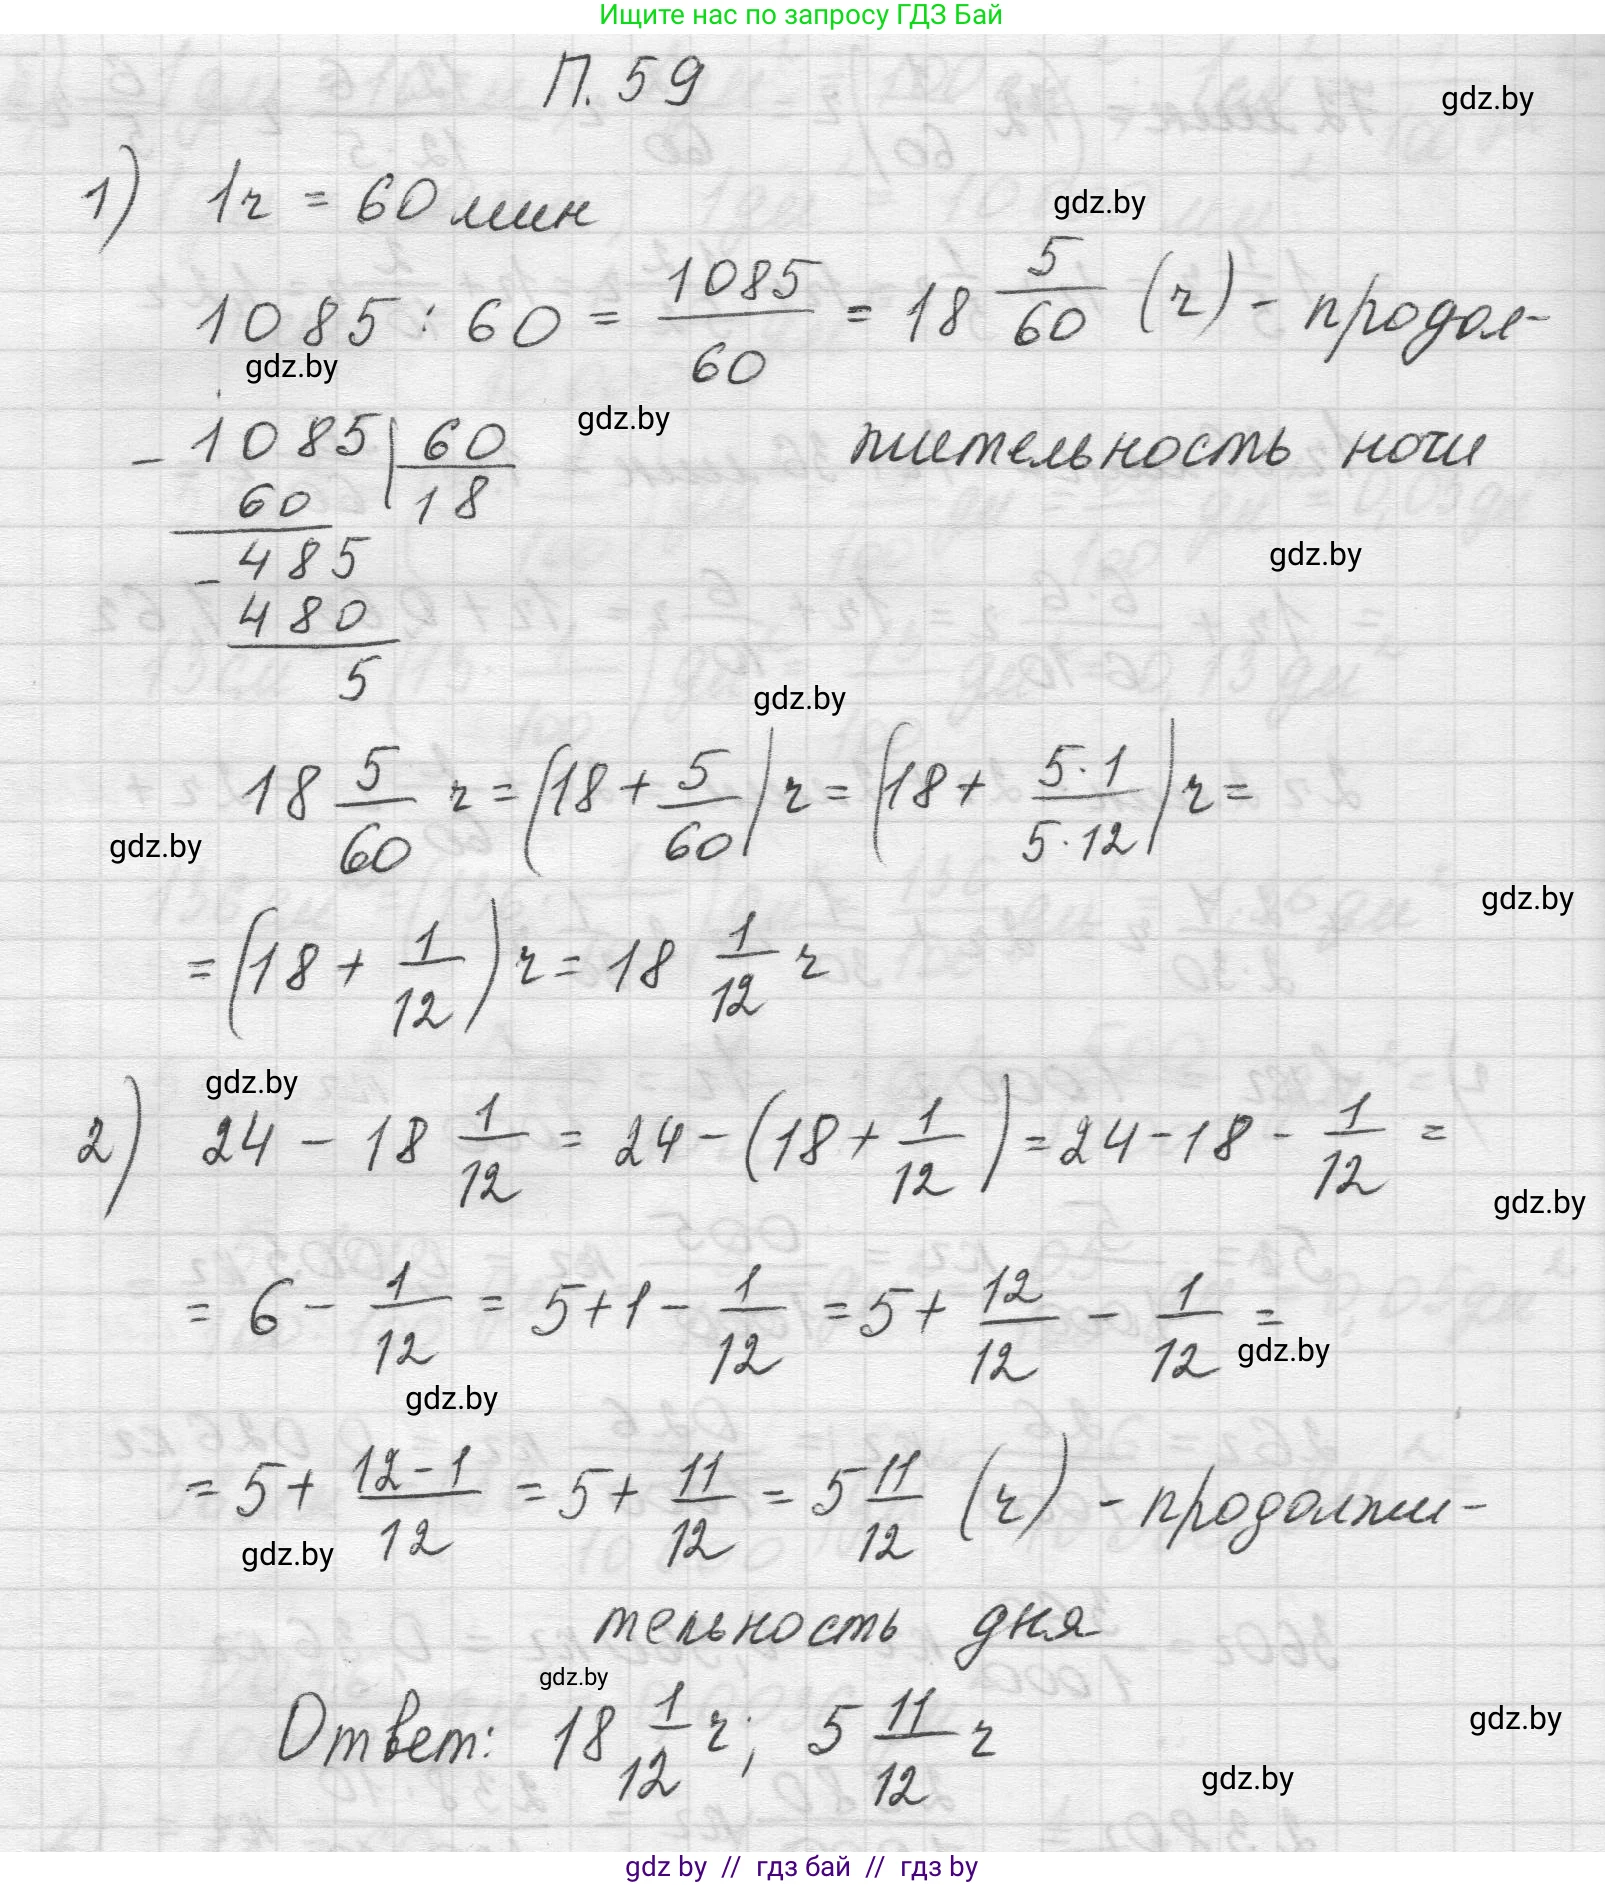 Ищите нас по запросу ГДЗ Бай
П. 59
gdz.by
1) 1ч = 60 мин
gdz.by
1085 : 60 = 1085/60 = 18 5/60 (ч) - продол-
gdz.by
gdz.by
1085 | 60
жительность ночи
- 60 | 18
485
gdz.by
- 480
5
gdz.by
18 5/60 ч = (18 + 5/60) ч = (18 + 5·1/5·12) ч =
gdz.by
gdz.by
= (18 + 1/12) ч = 18 1/12 ч
gdz.by
2) 24 - 18 1/12 = 24 - (18 + 1/12) = 24 - 18 - 1/12 =
gdz.by
= 6 - 1/12 = 5 + 1 - 1/12 = 5 + 12/12 - 1/12 =
gdz.by
gdz.by
= 5 + 12-1/12 = 5 + 11/12 = 5 11/12 (ч) - продолжи-
gdz.by
тельность дня
gdz.by
Ответ: 18 1/12 ч; 5 11/12 ч
gdz.by
gdz.by
gdz by // гдз бай // гдз by